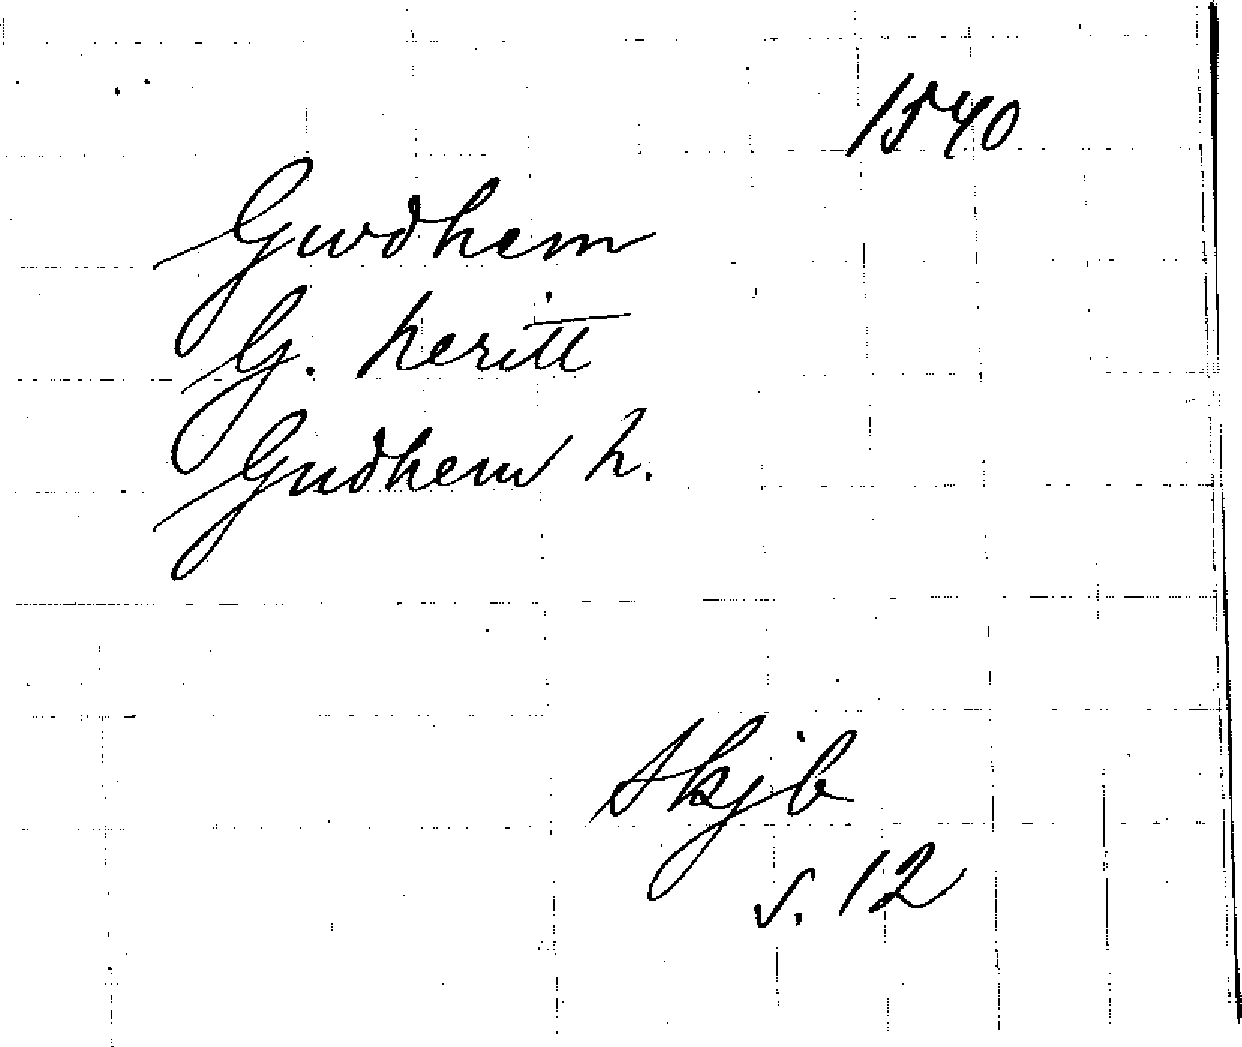 1540
Gwdhem
G. heritt
Gudhem h.
Skjb
s. 12